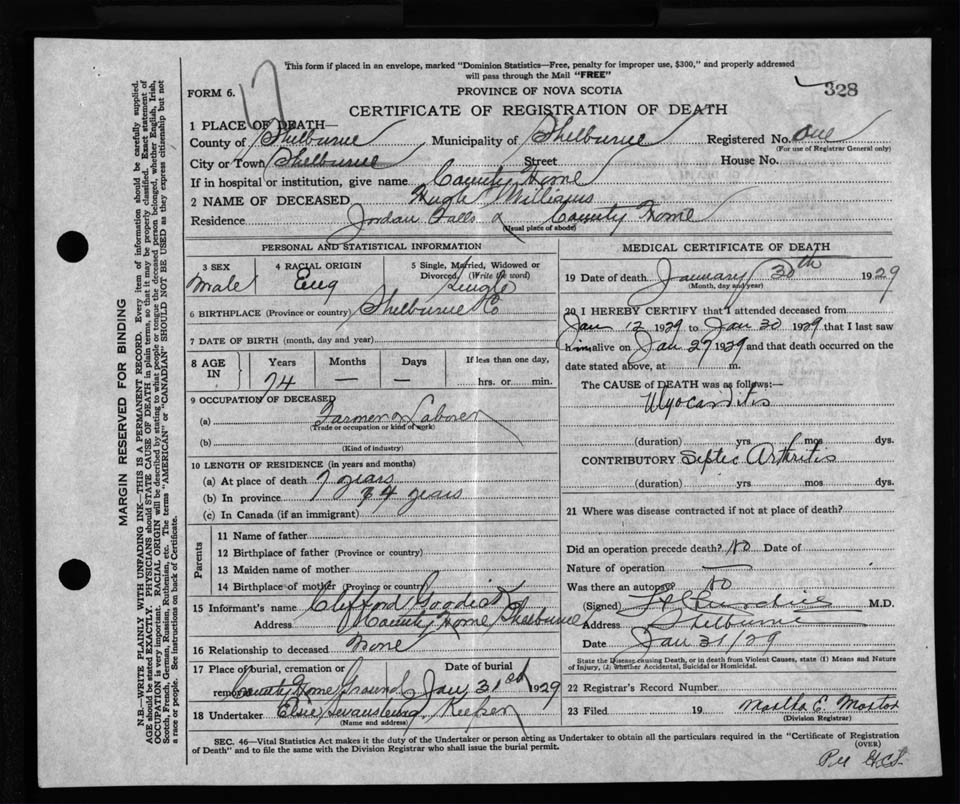 This form if placed in an envelope, marked "Dominion Statistics—Free, penalty for improper use, $300," and properly addressed
will pass through the Mail "FREE"
FORM 6.
17
PROVINCE OF NOVA SCOTIA
328
CERTIFICATE OF REGISTRATION OF DEATH
1 PLACE OF DEATH—
County of Shelburne Municipality of Shelburne Registered No. One
(For use of Registrar General only)
City or Town Shelburne Street House No.
If in hospital or institution, give name County Home
2 NAME OF DECEASED Hugh Williams
Residence Jordan Falls & County Home
(Usual place of abode)
PERSONAL AND STATISTICAL INFORMATION
3 SEX 4 RACIAL ORIGIN 5 Single, Married, Widowed or
Divorced (Write the word)
Male Eng Single
6 BIRTHPLACE (Province or country) Shelburne Co
7 DATE OF BIRTH (month, day and year)
8 AGE IN Years Months Days If less than one day,
74 — — hrs. or min.
9 OCCUPATION OF DECEASED
(a) Farmer or Laborer
(Trade or occupation or kind of work)
(b)
(Kind of industry)
10 LENGTH OF RESIDENCE (in years and months)
(a) At place of death 7 years
(b) In province 74 years
(c) In Canada (if an immigrant)
Parents
11 Name of father
12 Birthplace of father (Province or country)
13 Maiden name of mother
14 Birthplace of mother (Province or country)
15 Informant's name Clifford
Address County Home Shelburne
16 Relationship to deceased None
17 Place of burial, cremation or Date of burial
removal County Home Ground Jan 31st 1929
18 Undertaker Keeper
(Name and address)
MEDICAL CERTIFICATE OF DEATH
19 Date of death January 30th 1929
(Month, day and year)
20 I HEREBY CERTIFY that I attended deceased from
Jan 12 1929 to Jan 30 1929 that I last saw
him alive on Jan 27 1929 and that death occurred on the
date stated above, at m.
The CAUSE of DEATH was as follows:—
Myocarditis
(duration) yrs. mos. dys.
CONTRIBUTORY Septic Arthritis
(duration) yrs mos dys.
21 Where was disease contracted if not at place of death?
Did an operation precede death? No Date of
Nature of operation —
Was there an autopsy No
(Signed) M.D.
Address Shelburne
Date Jan 31/29
State the Disease causing Death, or in death from Violent Causes, state (1) Means and Nature
of Injury, (2) whether Accidental, Suicidal or Homicidal.
22 Registrar's Record Number
23 Filed 19 Martha E. Morton
(Division Registrar)
SEC. 46—Vital Statistics Act makes it the duty of the Undertaker or person acting as Undertaker to obtain all the particulars required in the "Certificate of Registration
of Death" and to file the same with the Division Registrar who shall issue the burial permit.
(OVER)
Per
MARGIN RESERVED FOR BINDING
N.B.—WRITE PLAINLY WITH UNFADING INK—THIS IS A PERMANENT RECORD. Every item of information should be carefully supplied.
AGE should be stated EXACTLY. PHYSICIANS should STATE CAUSE OF DEATH in plain terms, so that it may be properly classified. Exact statement of
OCCUPATION is very important. RACIAL ORIGIN will be described by stating to what people or tongue the deceased person belonged, whether English, Irish,
Scotch, French, German, Russian, Ruthenian, etc. The terms "AMERICAN" or "CANADIAN" SHOULD NOT BE USED as they express citizenship but not
a race or people. See instructions on back of Certificate.